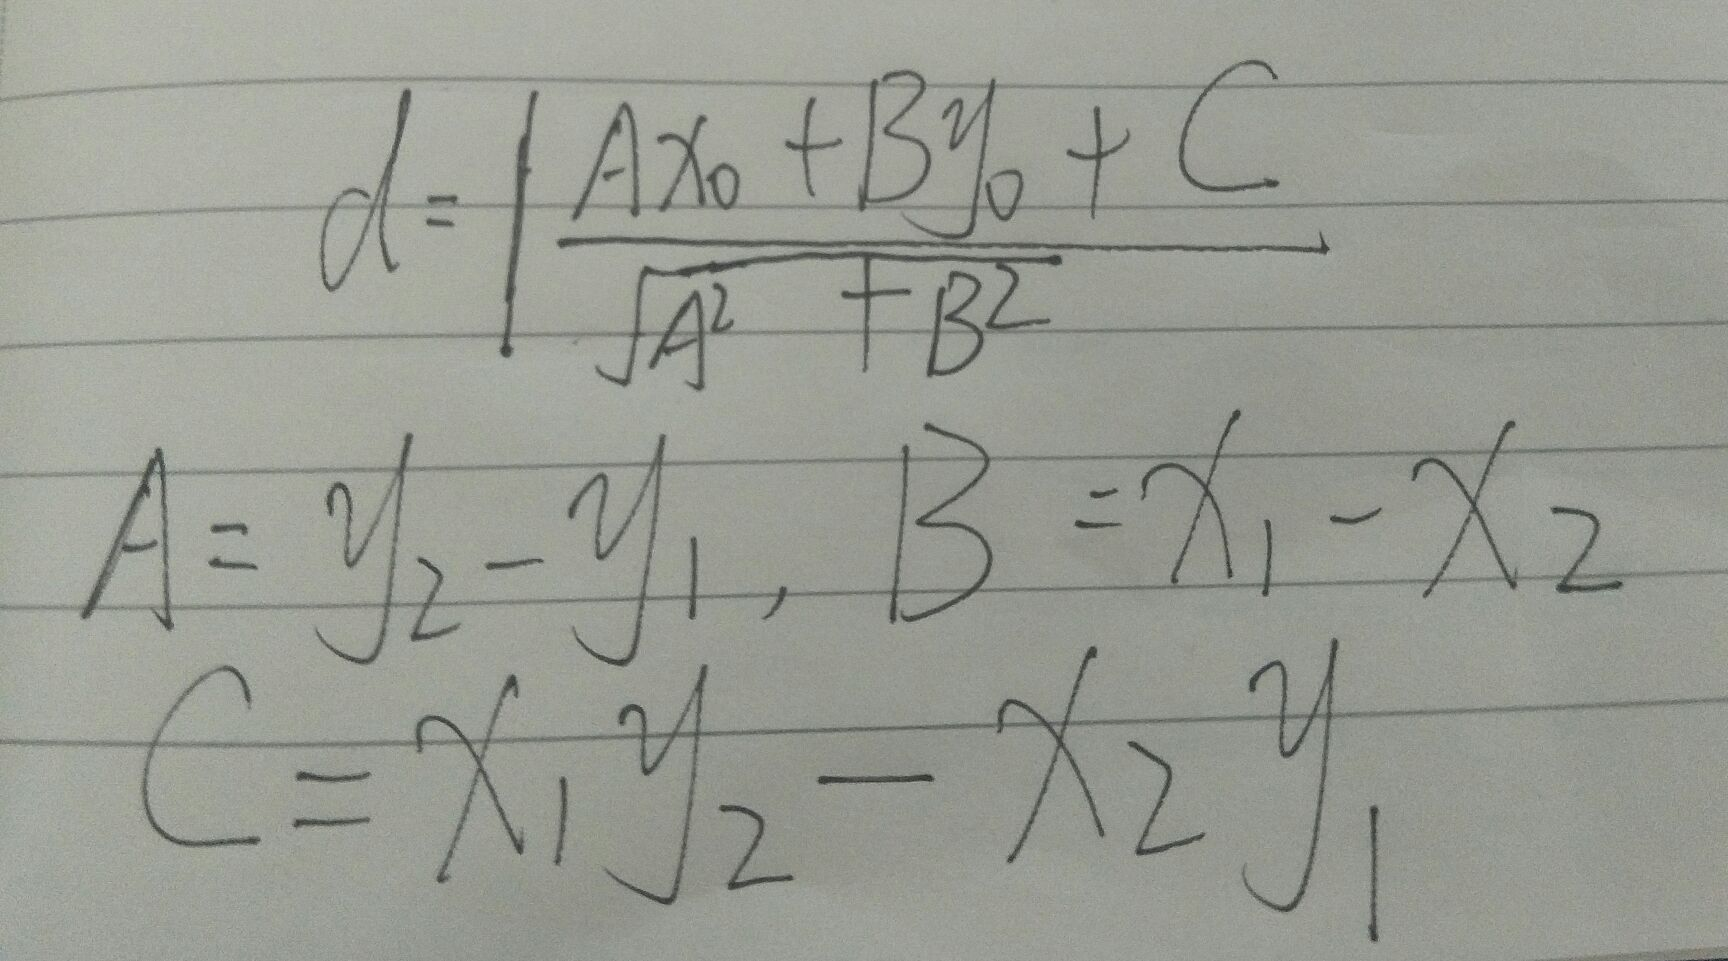 d = | Ax₀ + By₀ + C
√A² + B²
A = y₂ - y₁, B = x₁ - x₂
C = x₁y₂ - x₂y₁